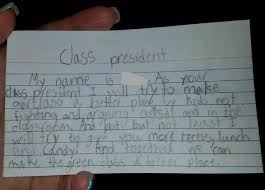 Class president
My name is . As your
class president I will try to make
our class a better place by kids not
fighting and arguing outside and in the
classroom. And last but not least I
will try to give you more recess, lunch
and Candy! And together we can
make the green class a better place.